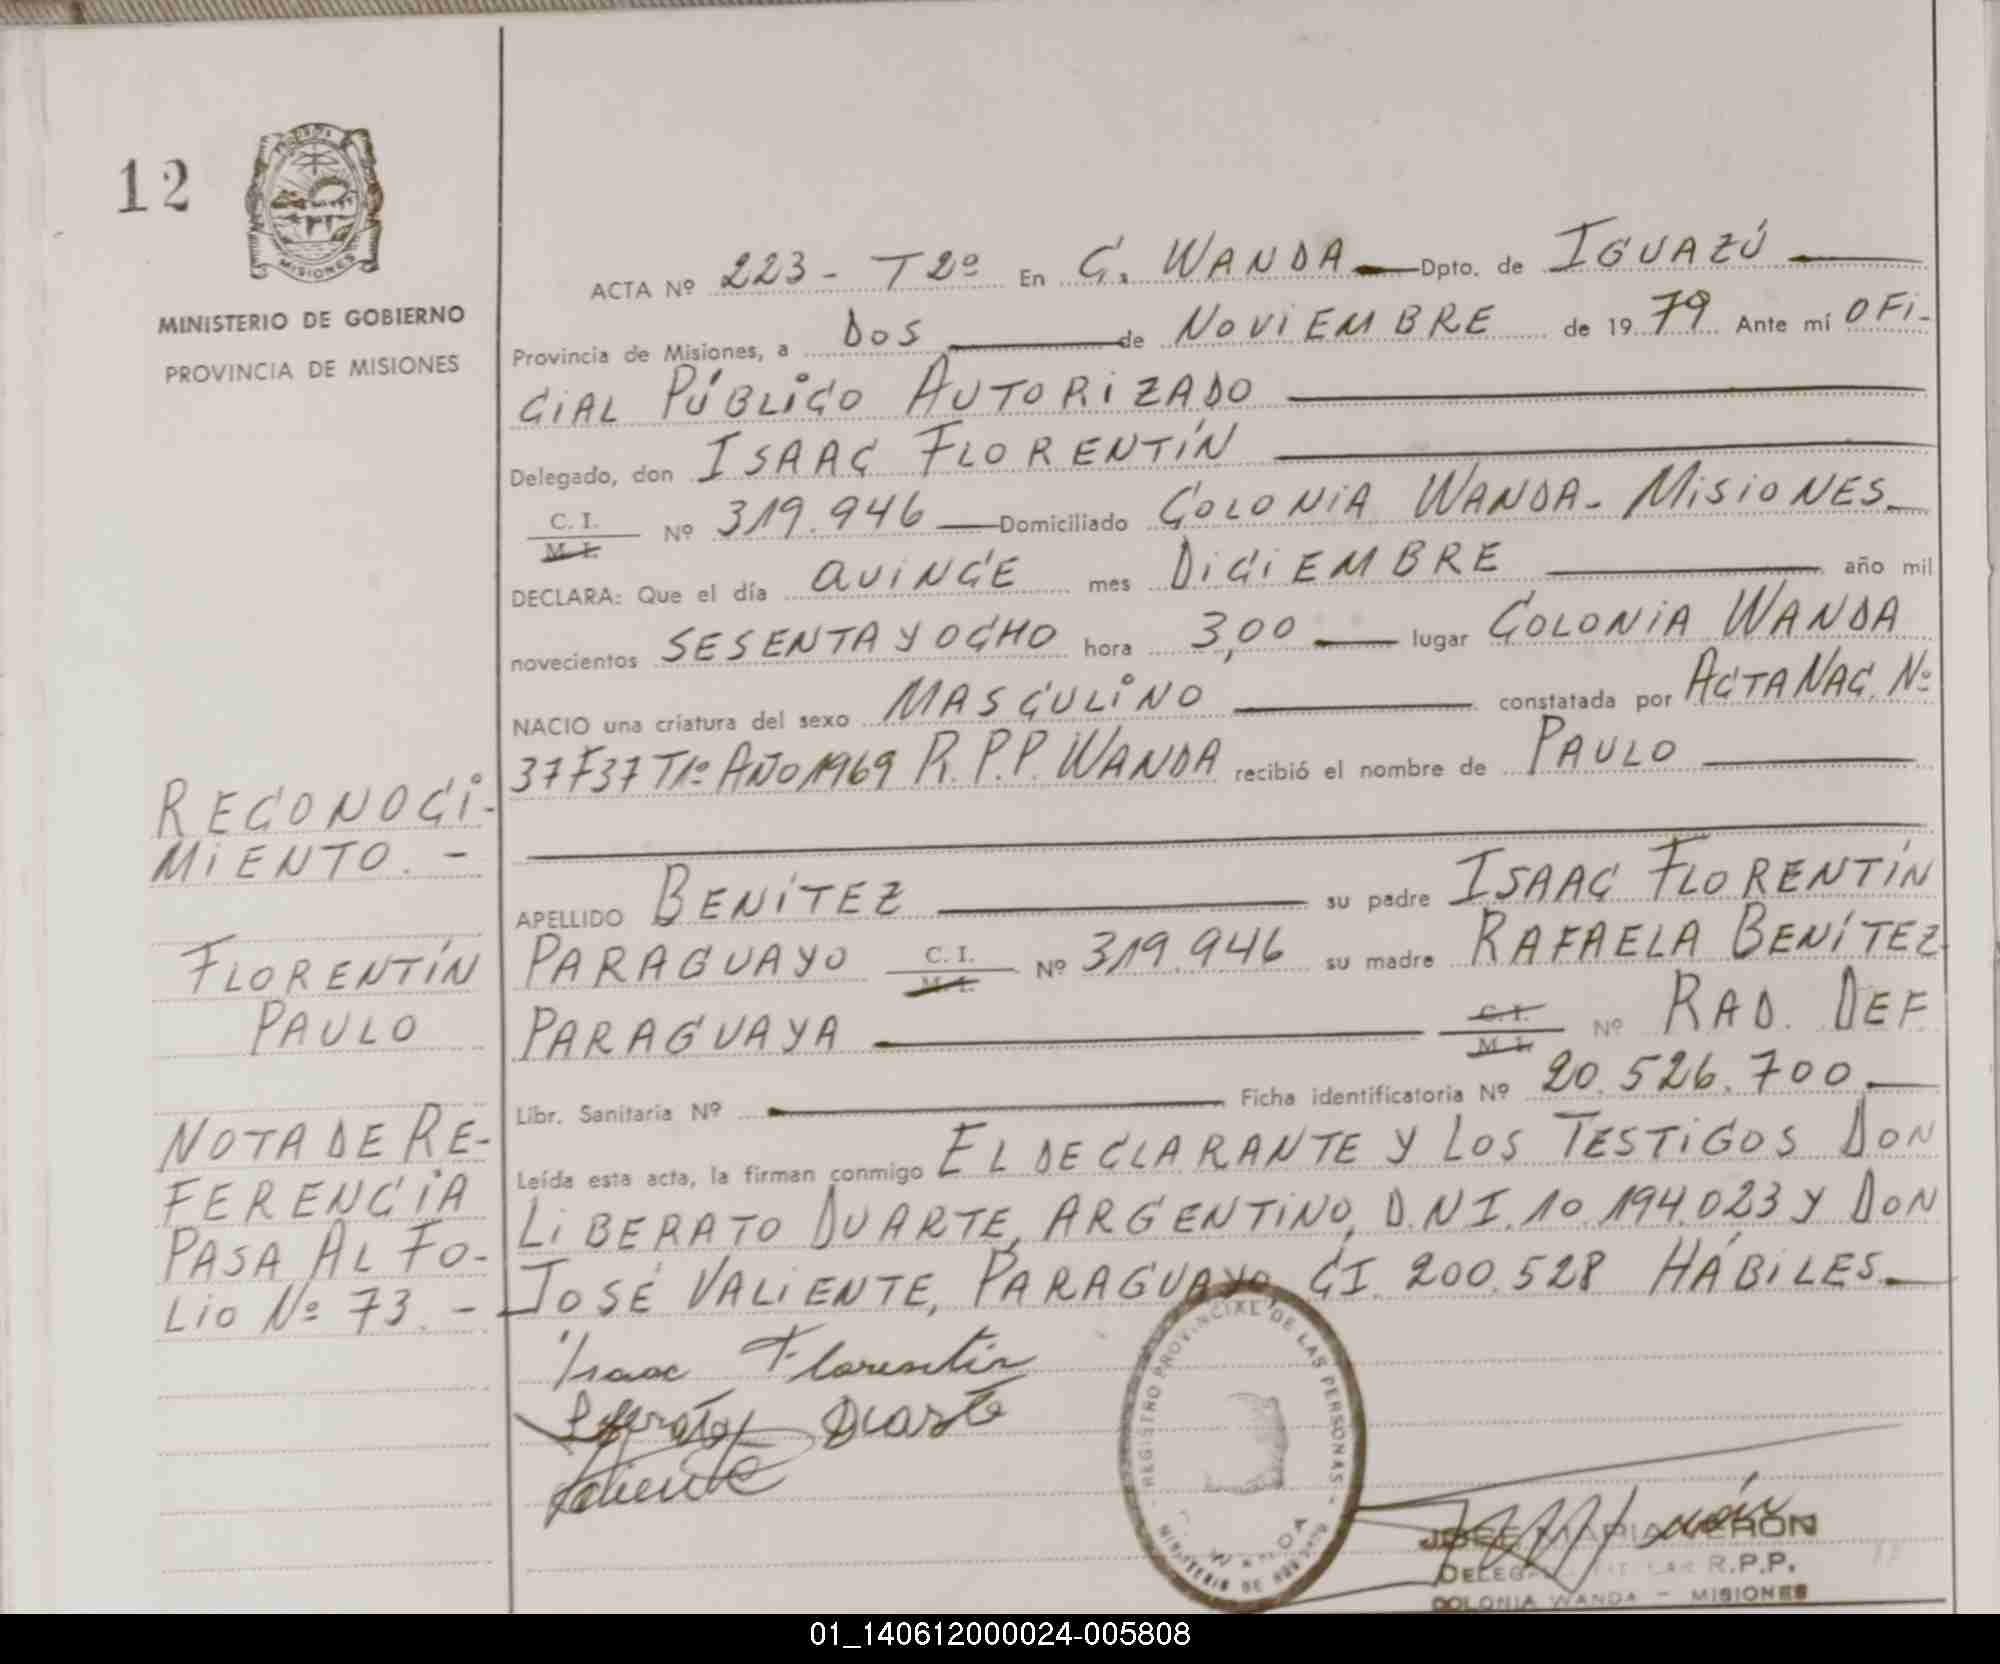 12
MISIONES
MINISTERIO DE GOBIERNO
PROVINCIA DE MISIONES
ACTA Nº 223 - T 2º En C. WANDA Dpto. de IGUAZÚ
Provincia de Misiones, a DOS de NOVIEMBRE de 1979 Ante mí OFI-
CIAL PÚBLICO AUTORIZADO
Delegado, don ISAAC FLORENTÍN
C. I.
M. I. Nº 319.946 Domiciliado COLONIA WANDA - MISIONES
DECLARA: Que el día QUINCE mes DICIEMBRE año mil
novecientos SESENTA Y OCHO hora 3,00 lugar COLONIA WANDA
NACIO una criatura del sexo MASCULINO constatada por ACTA NAC. Nº
37 F37 T1º AÑO 1969 R.P.P. WANDA recibió el nombre de PAULO
APELLIDO BENÍTEZ su padre ISAAC FLORENTÍN
PARAGUAYO C. I. M. I. Nº 319.946 su madre RAFAELA BENÍTEZ
PARAGUAYA C. I. M. I. Nº RAD. DEF
Libr. Sanitaria Nº Ficha identificatoria Nº 20.526.700
Leída esta acta, la firman conmigo EL DECLARANTE Y LOS TESTIGOS DON
LIBERATO DUARTE, ARGENTINO, D.N.I. 10.194.023 Y DON
JOSÉ VALIENTE, PARAGUAYO, CI. 200.528 HÁBILES
RECONOCI-
MIENTO. -
FLORENTÍN
PAULO
NOTA DE RE-
FERENCIA
PASA AL FO-
LIO Nº 73. -
Isaac Florentin
Liberato Duarte
Valiente
REGISTRO PROVINCIAL DE LAS PERSONAS
WANDA
MINISTERIO DE GOBIERNO
JOSE MARIA VERÓN
DELEGADO TITULAR R.P.P.
COLONIA WANDA - MISIONES
01_140612000024-005808